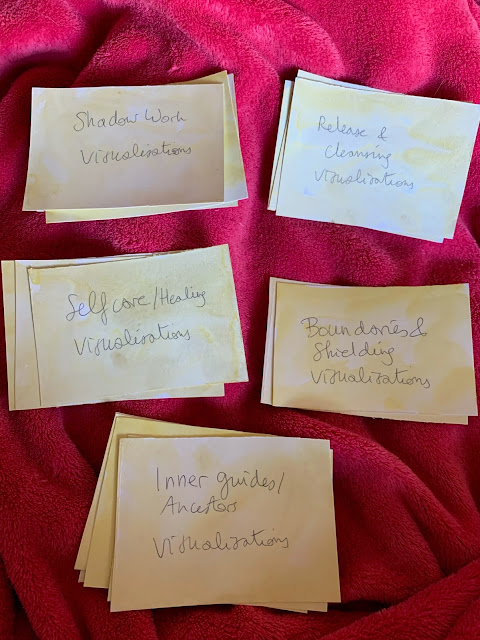 Shadow Work
Visualisations
Release &
Cleansing
Visualisations
Self care/Healing
Visualisations
Boundaries &
Shielding
Visualisations
Inner guides/
Ancestors
Visualisations